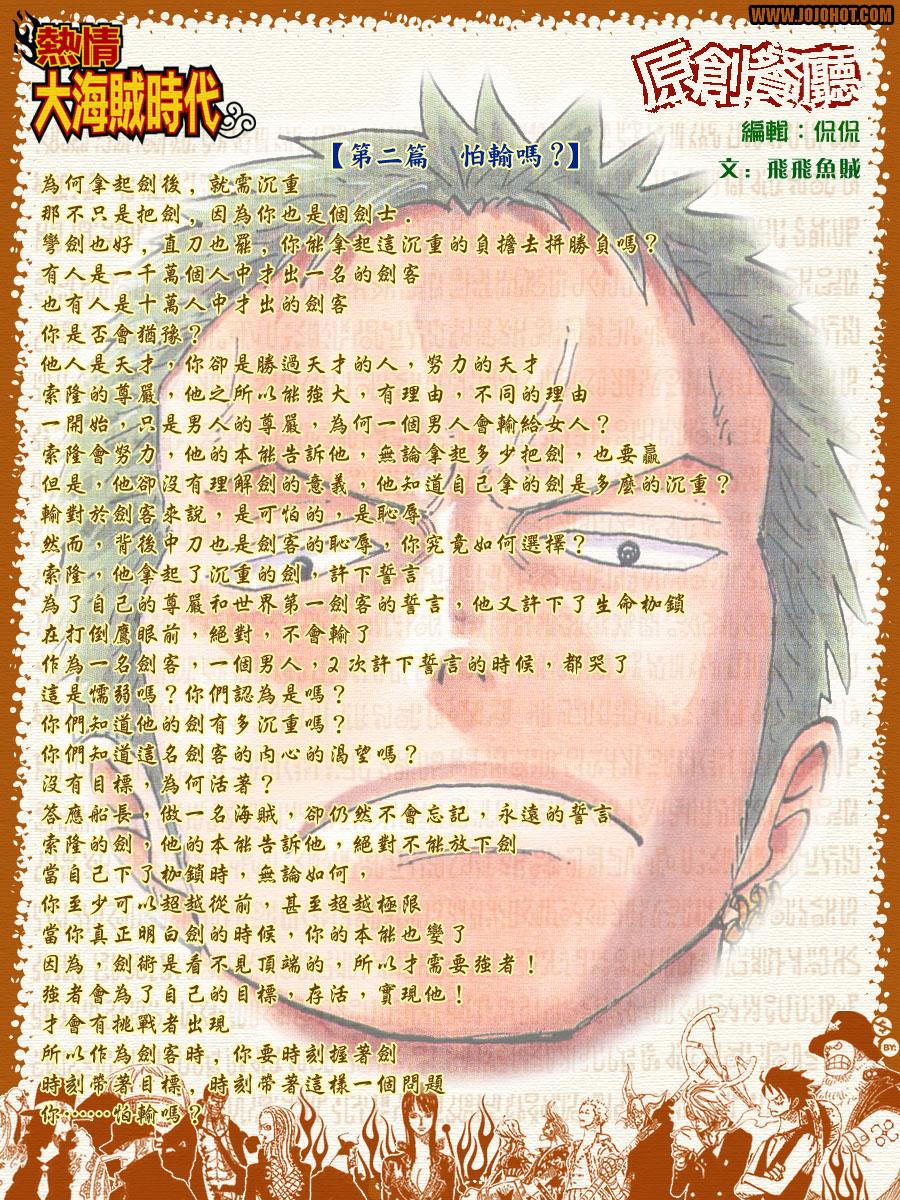 WWW.JOJOHOT.COM
熱情
大海賊時代
原創餐廳
編輯：侃侃
文：飛飛魚賊
【第二篇　怕輸嗎？】
為何拿起劍後，就需沉重
那不只是把劍，因為你也是個劍士．
彎劍也好，直刀也罷，你能拿起這沉重的負擔去拼勝負嗎？
有人是一千萬個人中才出一名的劍客
也有人是十萬人中才出的劍客
你是否會猶豫？
他人是天才，你卻是勝過天才的人，努力的天才
索隆的尊嚴，他之所以能強大，有理由，不同的理由
一開始，只是男人的尊嚴，為何一個男人會輸給女人？
索隆會努力，他的本能告訴他，無論拿起多少把劍，也要贏
但是，他卻沒有理解劍的意義，他知道自己拿的劍是多麼的沉重？
輸對於劍客來說，是可怕的，是恥辱
然而，背後中刀也是劍客的恥辱，你究竟如何選擇？
索隆，他拿起了沉重的劍，許下誓言
為了自己的尊嚴和世界第一劍客的誓言，他又許下了生命枷鎖
在打倒鷹眼前，絕對，不會輸了
作為一名劍客，一個男人，2次許下誓言的時候，都哭了
這是懦弱嗎？你們認為是嗎？
你們知道他的劍有多沉重嗎？
你們知道這名劍客的內心的渴望嗎？
沒有目標，為何活著？
答應船長，做一名海賊，卻仍然不會忘記，永遠的誓言
索隆的劍，他的本能告訴他，絕對不能放下劍
當自己下了枷鎖時，無論如何，
你至少可以超越從前，甚至超越極限
當你真正明白劍的時候，你的本能也變了
因為，劍術是看不見頂端的，所以才需要強者！
強者會為了自己的目標，存活，實現他！
才會有挑戰者出現
所以作為劍客時，你要時刻握著劍
時刻帶著目標，時刻帶著這樣一個問題
你……怕輸嗎？
BY: